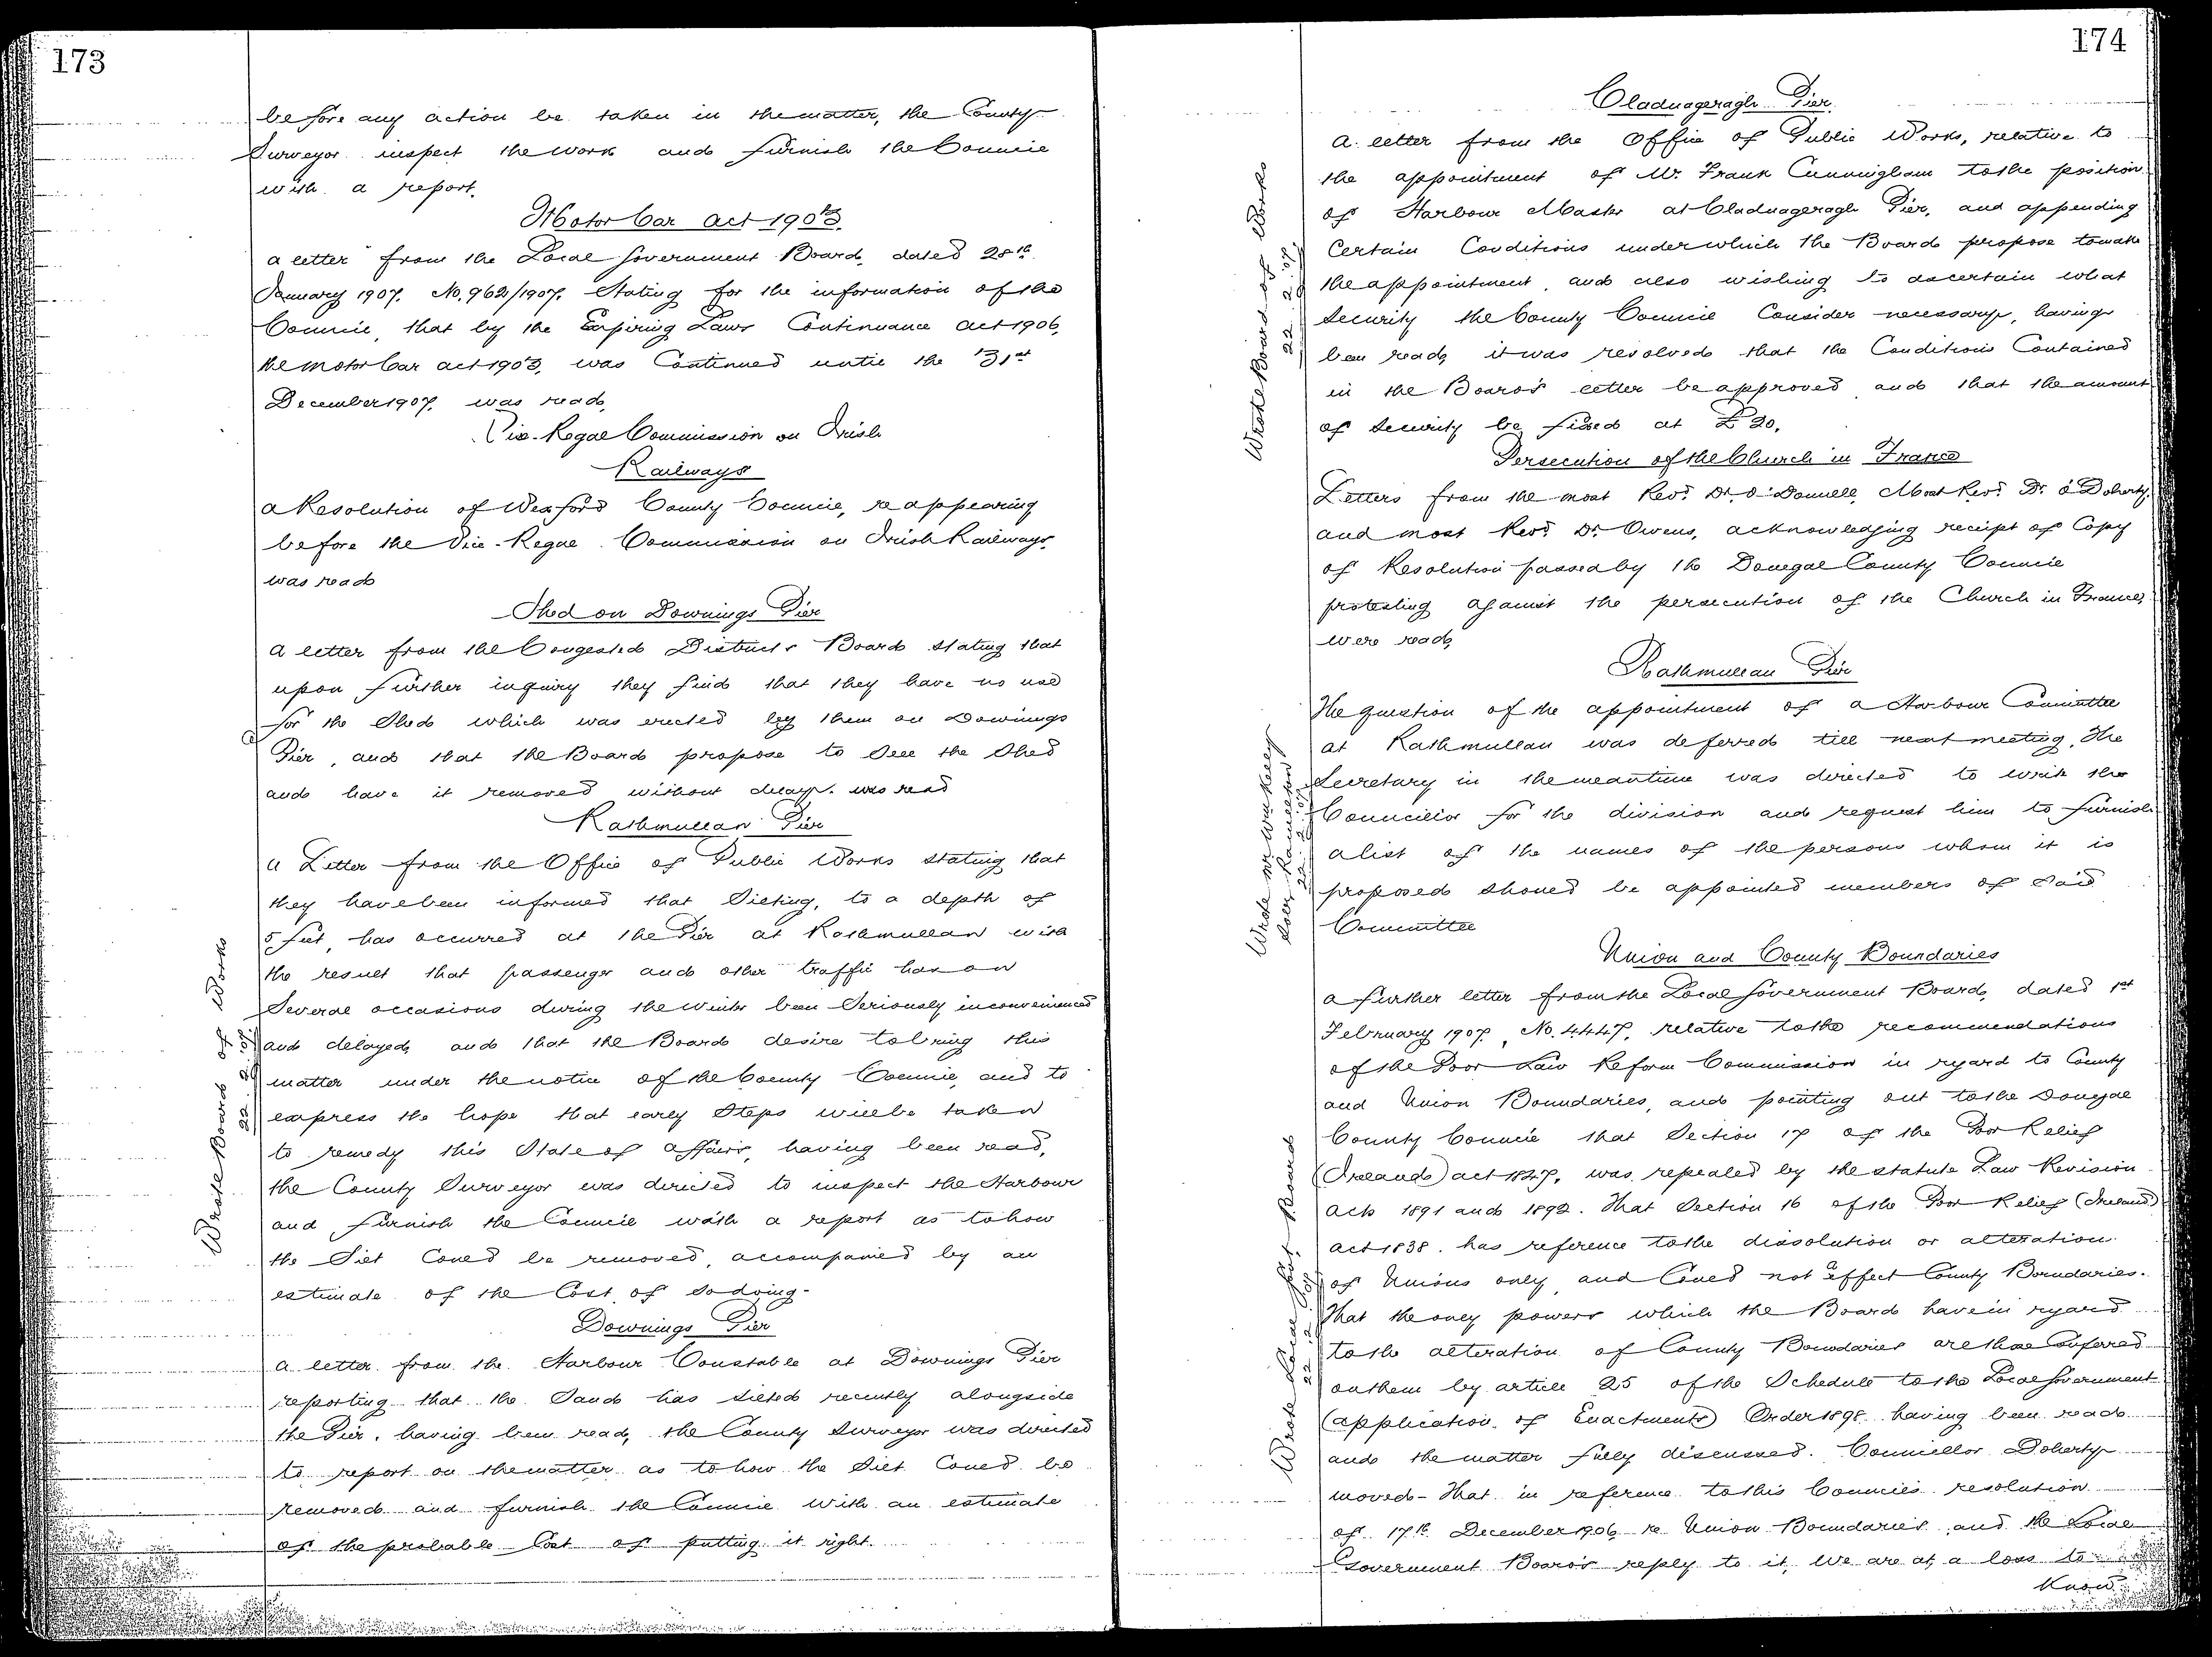 173
before any action be taken in the matter, the County
Surveyor inspect the work and furnish the Council
with a report.
Motor Car Act 1903.
a letter from the Local Government Board, dated 28th
January 1907. No. 962/1907. Stating for the information of the
Council, that by the Expiring Laws Continuance Act 1906,
the Motor Car Act 1903, was Continued until the 31st
December 1907. was read,
Vice-Regal Commission on Irish
Railways
a Resolution of Wexford County Council, re appearing
before the Vice-Regal Commission on Irish Railways
was read
Shed on Downings Pier
a letter from the Congested Districts Board stating that
upon further inquiry they find that they have no use
for the Shed which was erected by them on Downings
Pier, and that the Board propose to Sell the Shed
and have it removed without delay. was read
Rathmullan Pier
a Letter from the Office of Public Works stating that
they have been informed that Silting, to a depth of
5 feet, has occurred at the Pier at Rathmullan with
the result that passenger and other traffic has on
Several occasions during the Winter been Seriously inconvenienced
and delayed, and that the Board desire to bring this
matter under the notice of the County Council, and to
express the hope that early Steps will be taken
to remedy this State of affairs, having been read,
the County Surveyor was directed to inspect the Harbour
and furnish the Council with a report as to how
the Silt Could be removed, accompanied by an
estimate of the Cost of so doing.
Wrote Board of Works
22.2.07.
Downings Pier
a letter from the Harbour Constable at Downings Pier
reporting that the Sand has silted recently alongside
the Pier, having been read, the County Surveyor was directed
to report on the matter as to how the Silt Could be
removed and furnish the Council with an estimate
of the probable Cost of putting it right.
174
Cladnageragh Pier.
a letter from the Office of Public Works, relative to
the appointment of Mr. Frank Cunningham to the position
of Harbour Master at Cladnageragh Pier, and appending
Certain Conditions under which the Board propose to make
the appointment, and also wishing to ascertain what
Security the County Council Consider necessary, having
been read, it was resolved that the Conditions Contained
in the Board's letter be approved and that the amount
of Security be fixed at £20.
Wrote Board of Works
22.2.07.
Persecution of the Church in France
Letters from the most Revd. Dr. O'Donnell, Most Revd. Dr. O'Doherty,
and most Revd. Dr. Owens, acknowledging receipt of Copy
of Resolution passed by the Donegal County Council
protesting against the persecution of the Church in France,
were read,
Rathmullan Pier
The question of the appointment of a Harbour Committee
at Rathmullan was deferred till next meeting. The
Secretary in the meantime was directed to write the
Councillor for the division and request him to furnish
a list of the names of the persons whom it is
proposed should be appointed members of Said
Committee
Wrote Mr Wm Kelly
Solr, Ramelton
22.2.07.
Union and County Boundaries
a further letter from the Local Government Board, dated 1st
February 1907, No. 4447, relative to the recommendations
of the Poor Law Reform Commission in regard to County
and Union Boundaries, and pointing out to the Donegal
County Council that Section 17 of the Poor Relief
(Ireland) Act 1847, was repealed by the Statute Law Revision
Acts 1891 and 1892. That Section 16 of the Poor Relief (Ireland)
Act 1838. has reference to the dissolution or alteration
of Unions only, and Could not affect County Boundaries.
That the only powers which the Board have in regard
to the alteration of County Boundaries are those Conferred
on them by article 25 of the Schedule to the Local Government
(Application of Enactments) Order 1898 having been read
and the matter fully discussed. Councillor Doherty
moved - That in reference to this Council's resolution
of 17th December 1906 re Union Boundaries and the Local
Government Board's reply to it, We are at a loss to
Know
Wrote Local Govt. Board
22.2.07.